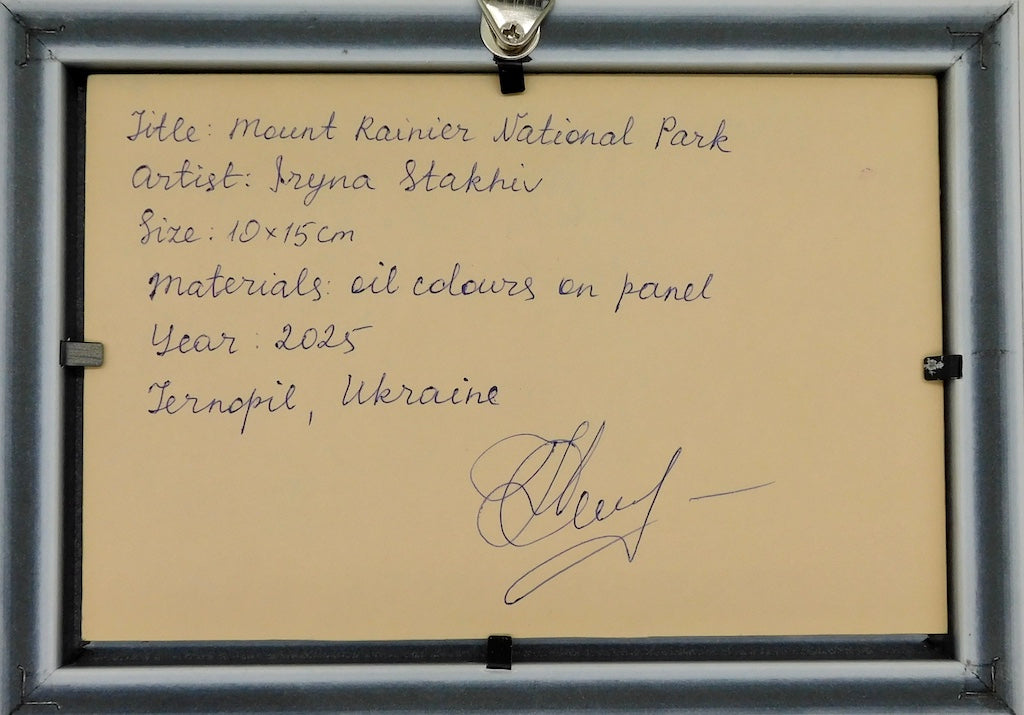 Title: Mount Rainier National Park
Artist: Iryna Stakhiv
Size: 10×15cm
Materials: oil colours on panel
Year: 2025
Ternopil, Ukraine